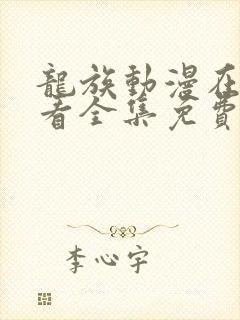 龍族動漫在
看全集免費
李心宇